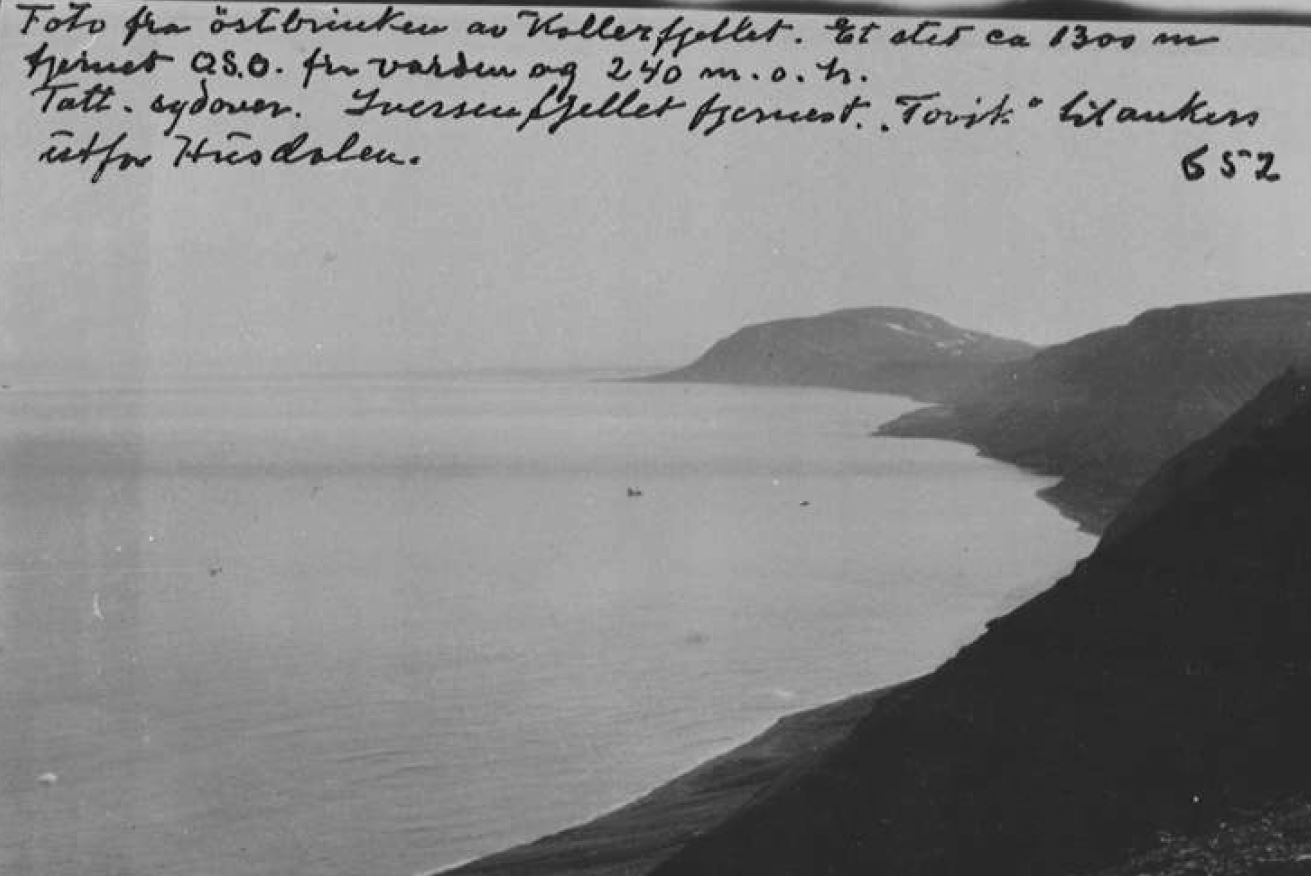 Foto fra östbrinken av Kollerfjellet. Et sted ca 1300 m
fjernet QSO. fra varden og 240 m.o.h.
Tatt. sydover. Iversenfjellet fjernest. "Tovik" til ankers
utfor Husdalen.
652